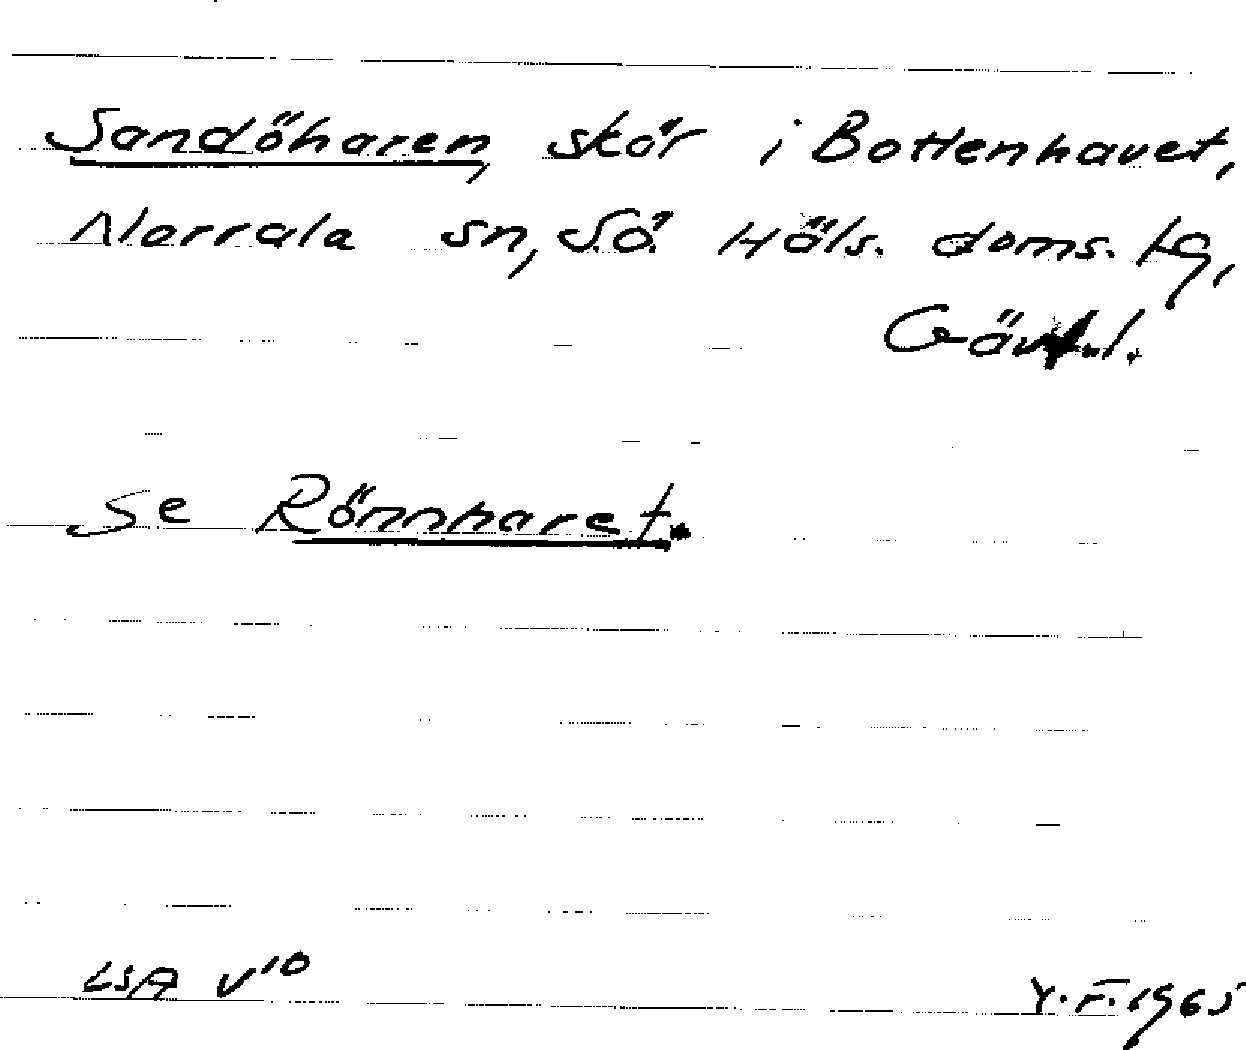 Sandöharen, skär i Bottenhavet,
Norrala sn, Sö. Häls. doms. tg,
Gävl.l.
Se Rönnharet.
LSA V¹⁰
Y.F. 1965